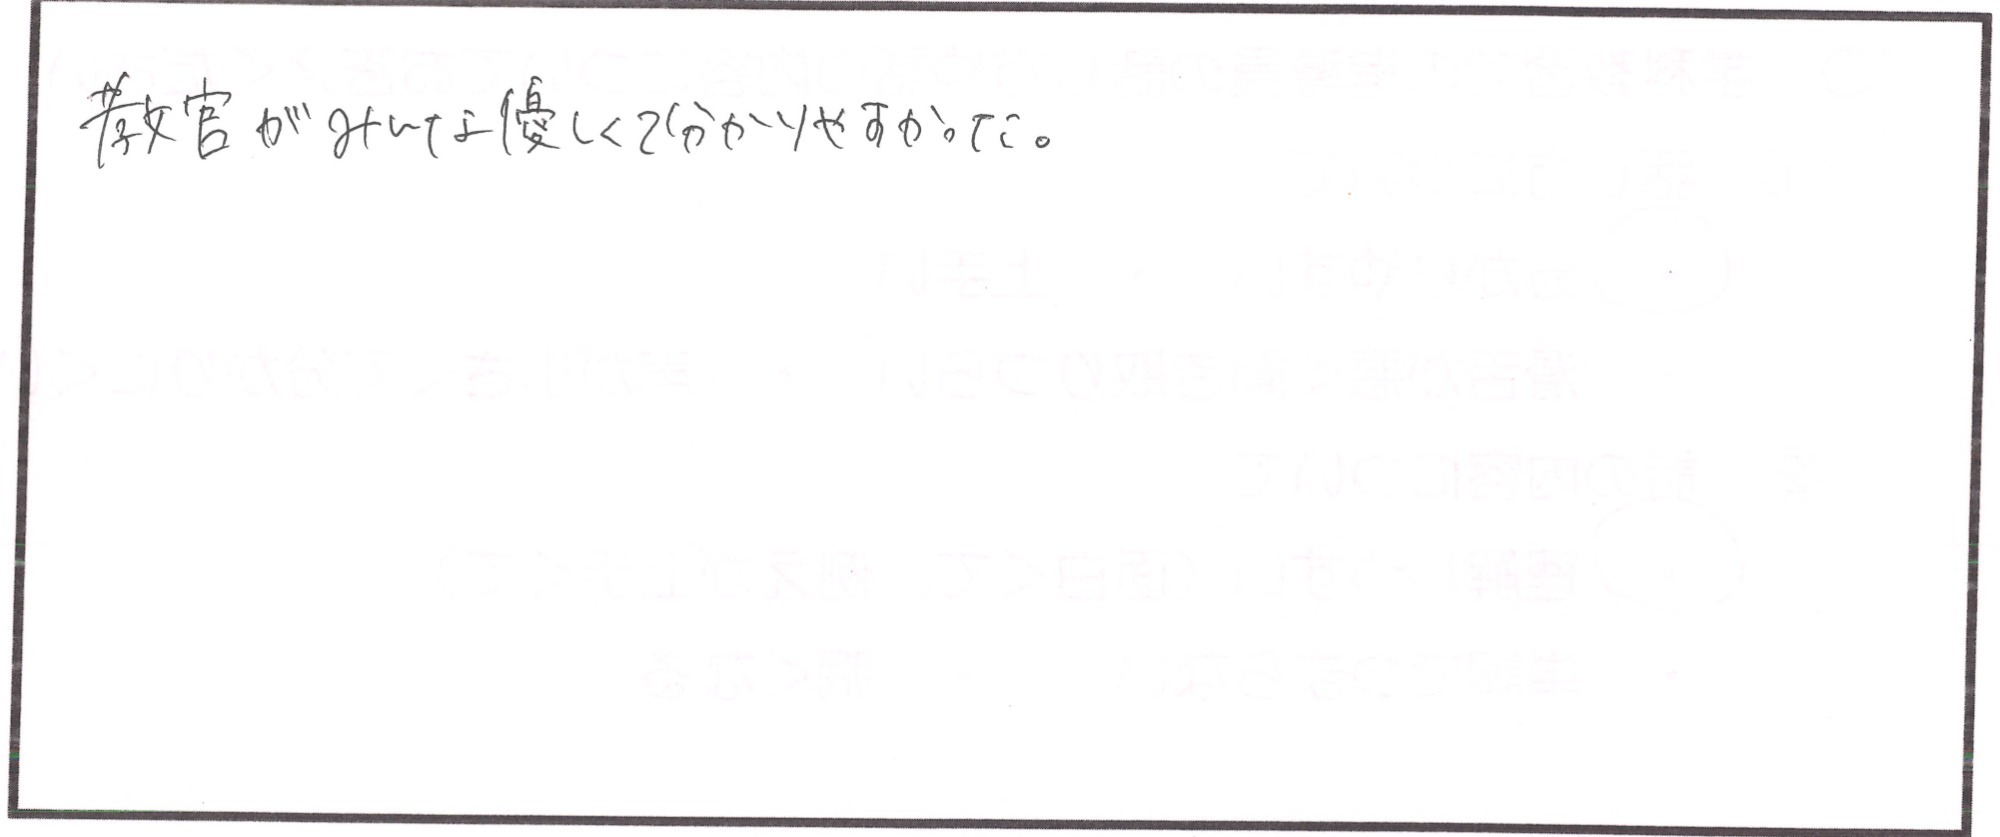 教官がみんな優しくて分かりやすかった。